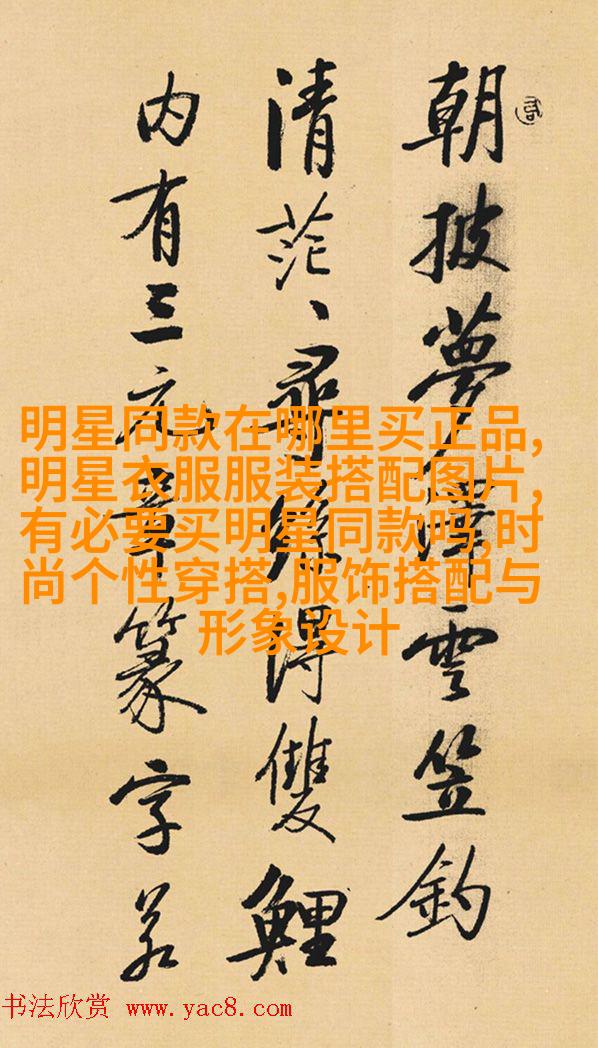 朝披夢澤雲笠釣
清茫、尋絲得雙鯉
内有三元章篆字若
明星同款在哪里买正品,
明星衣服服装搭配图片,
有必要买明星同款吗,时
尚个性穿搭,服饰搭配与
形象设计
书法欣赏 www.yac8.com